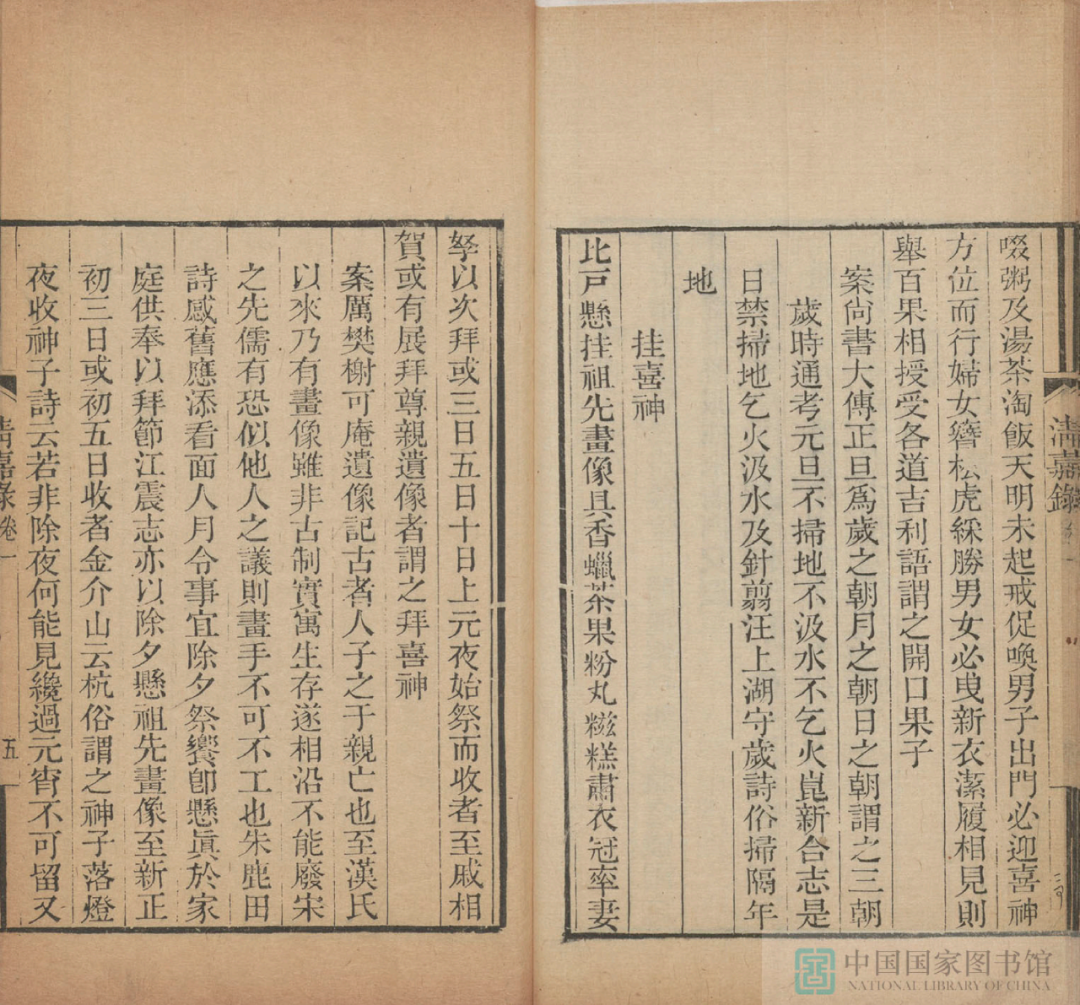 啜粥及湯茶淘飯天明未起戒促喚男子出門必迎喜神
方位而行婦女簪松虎綵勝男女必曳新衣潔履相見則
舉百果相授受各道吉利語謂之開口果子
案尚書大傳正旦爲歲之朝月之朝日之朝謂之三朝
歲時通考元旦不掃地不汲水不乞火崑新合志是
日禁掃地乞火汲水及針翦汪上湖守歲詩俗掃隔年
地
挂喜神
比戸懸挂祖先畫像具香蠟茶果粉丸糍糕肅衣冠率妻
孥以次拜或三日五日十日上元夜始祭而收者至戚相
賀或有展拜尊親遺像者謂之拜喜神
案厲樊榭可庵遺像記古者人子之于親亡也至漢氏
以來乃有畫像雖非古制實寓生存遂相沿不能廢宋
之先儒有恐似他人之議則畫手不可不工也朱鹿田
詩感舊應添看面人月令事宜除夕祭饗卽懸眞於家
庭供奉以拜節江震志亦以除夕懸祖先畫像至新正
初三日或初五日收者金介山云杭俗謂之神子落燈
夜收神子詩云若非除夜何能見纔過元宵不可留又
清嘉錄
清嘉錄 卷一
五
中国国家图书馆
NATIONAL LIBRARY OF CHINA